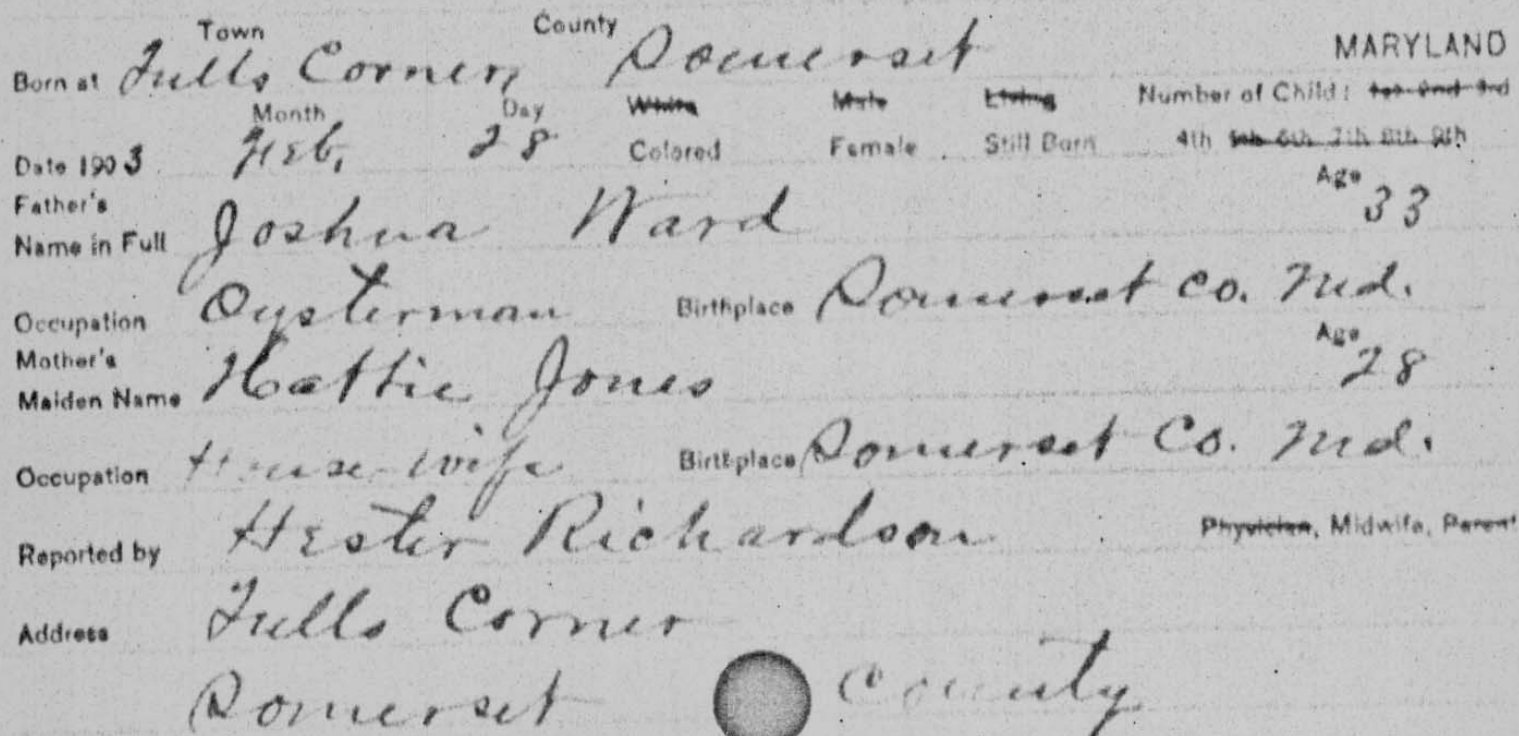 Town County
Born at Tulls Corner, Somerset MARYLAND
Month Day White Male Living Number of Child: 1st 2nd 3rd
Date 1903 Feb, 28 Colored Female Still Born 4th 5th 6th 7th 8th 9th
Father's Age
Name in Full Joshua Ward 33
Occupation Oysterman Birthplace Somerset Co. Md.
Mother's Age
Maiden Name Hattie Jones 28
Occupation House wife Birthplace Somerset Co. Md.
Reported by Hester Richardson Physician, Midwife, Parent
Address Tulls Corner
Somerset County